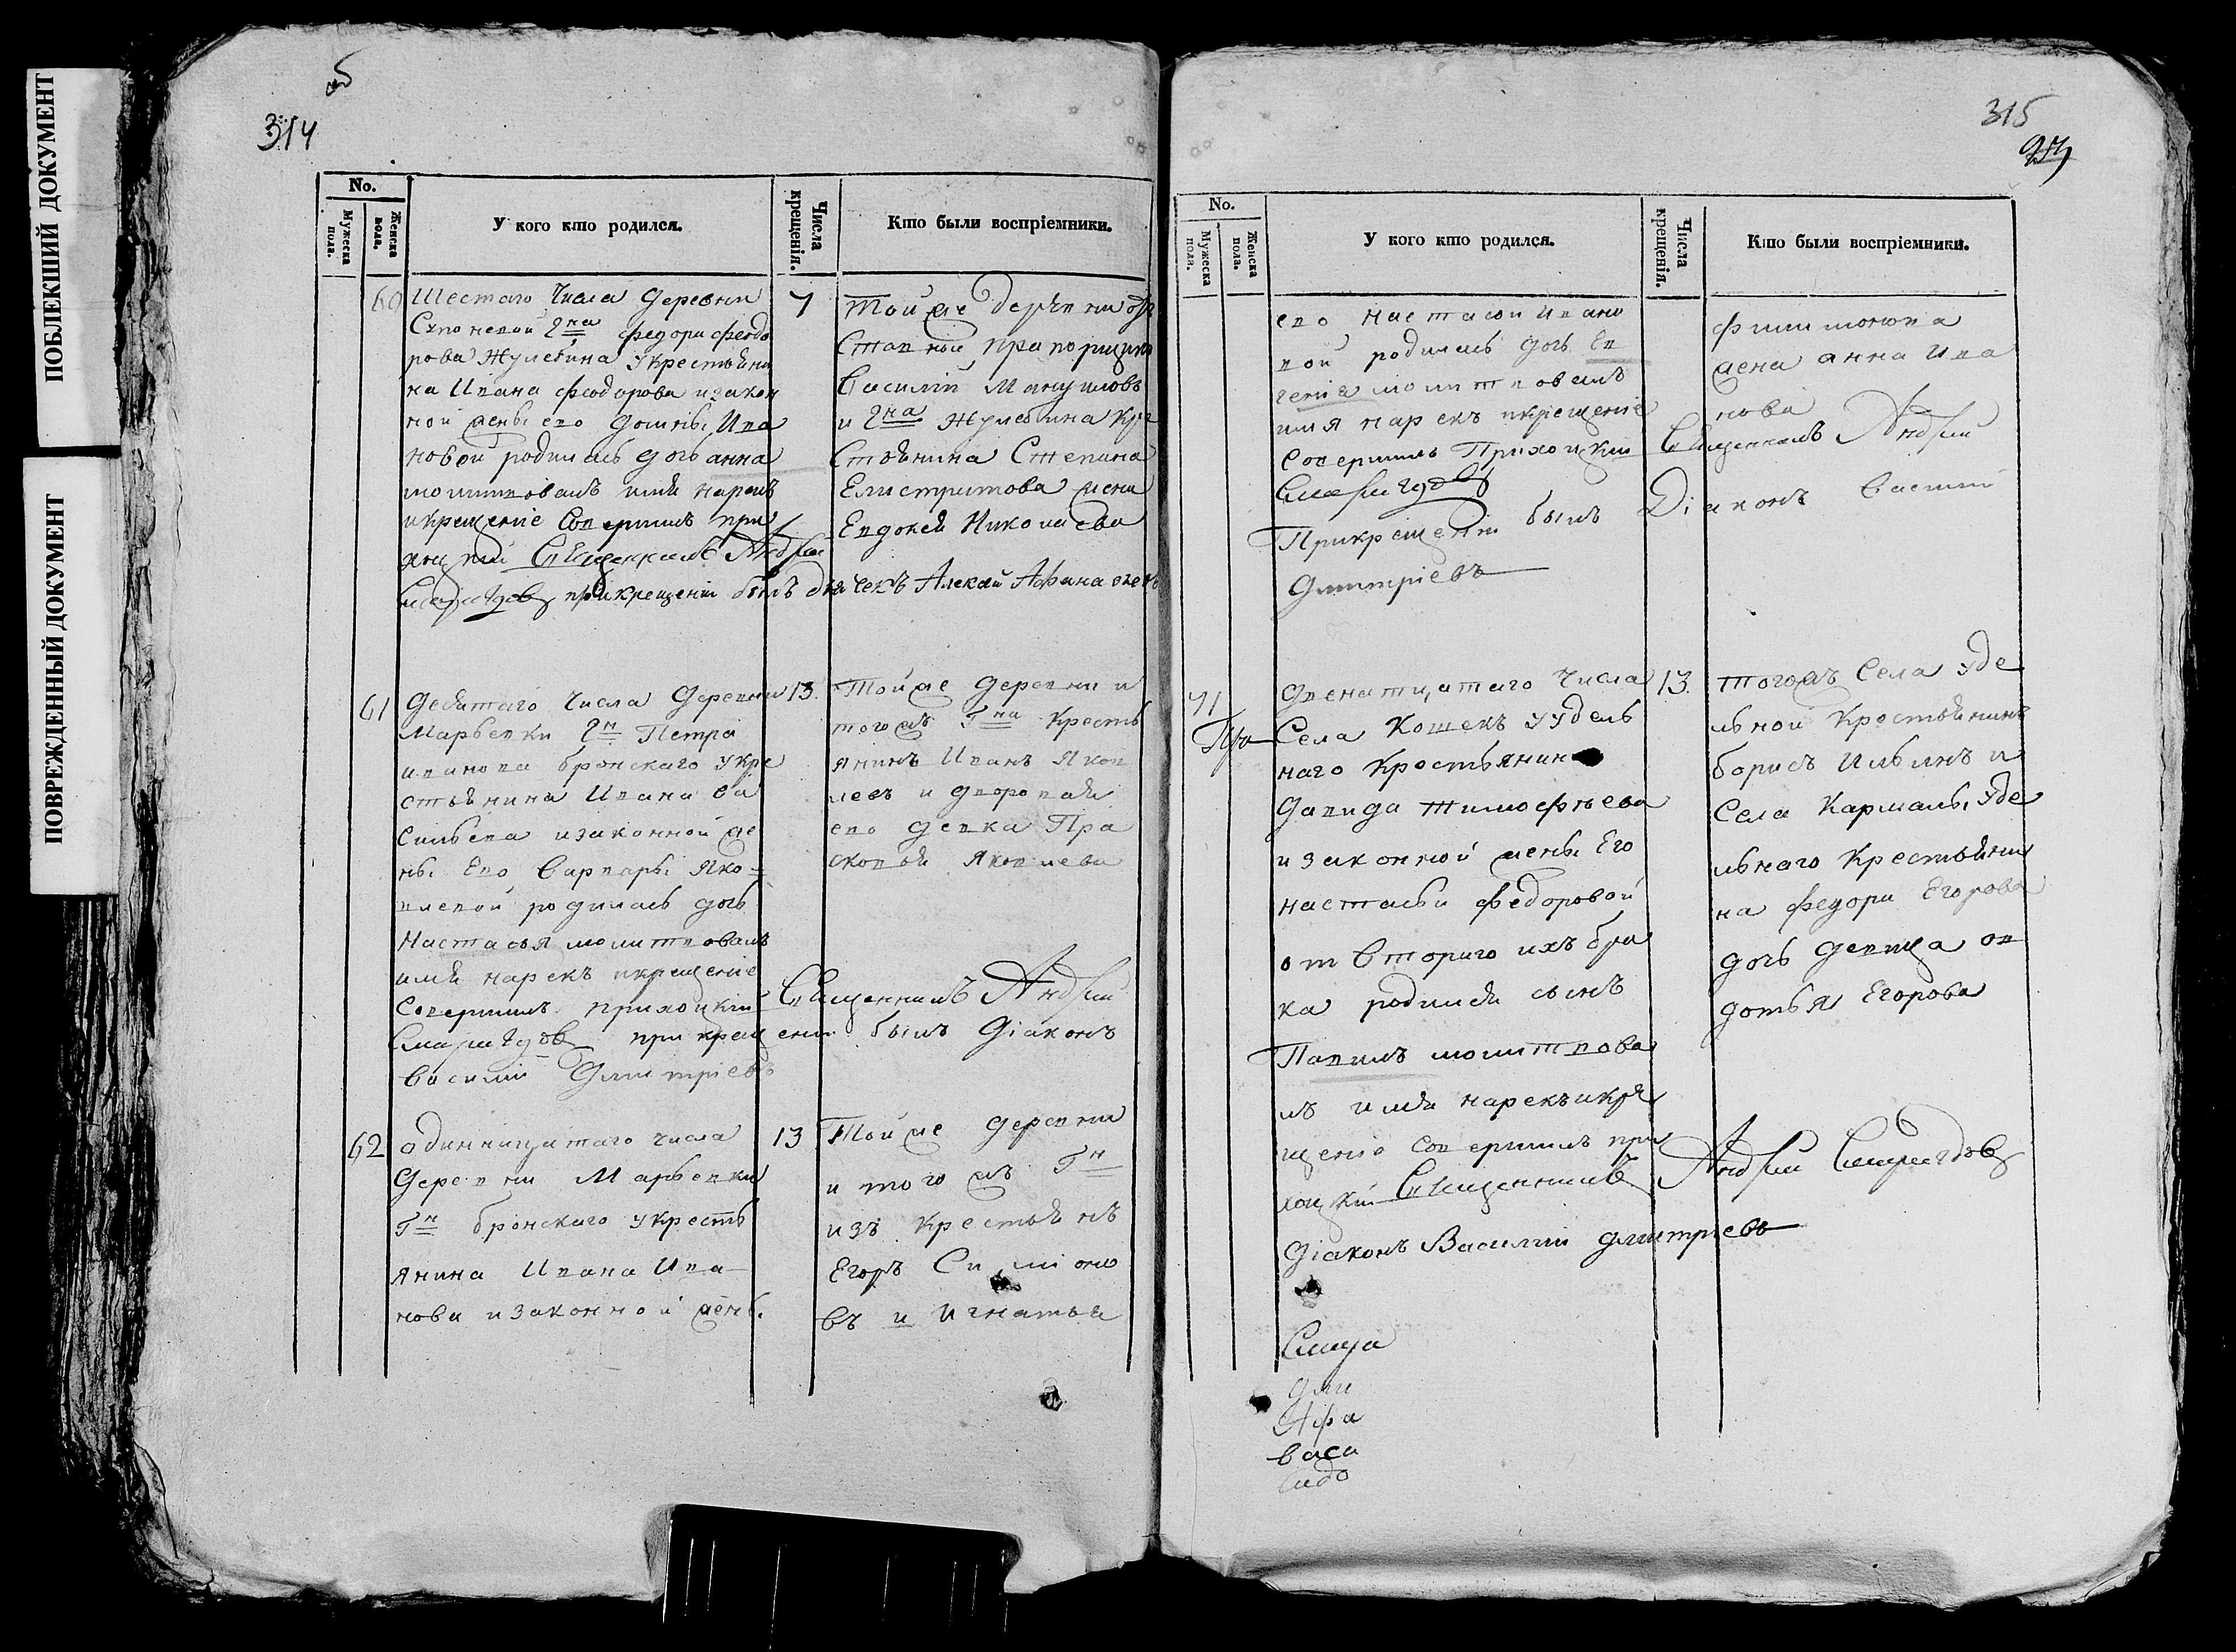 ПОБЛЕКШИЙ ДОКУМЕНТ
ПОВРЕЖДЕННЫЙ ДОКУМЕНТ
314
No.
Мужеска пола.
Женска пола.
У кого кто родился.
Числа крещенія.
Кто были воспріемники.
60
Шестаго Числа деревни
г на федора феодо
рова Жулебина укрестьяни
на Ивана феодорова изакон
ной жены его домны Ива
новой родилась дочь анна
молитвовалъ имя нарекъ
икрещеніе Совершилъ при
хоцкий Священникъ Андрей
прикрещении былъ дьячекъ Алексей Афанасьевъ
7
Тойже деревни от
Ставный прапорщикъ
Василий Мануиловъ
и г на Жулебина кре
Стьянина Степана
Елистратова жена
Евдокея Николаева
61
девятаго числа деревни
Марьевки г н Петра
иванова бронскаго укре
стьянина Ивана Ва
сильева изаконной же
ны Его Варвары Яко=
влевой родилась дочь
Настасья молитвовалъ
имя нарекъ икрещение
совершилъ приходцкий Священникъ Андрей
при крещении былъ діаконъ
Василий Дмитріевъ
13.
Тойже деревни и
тогожъ Г на Кресть
янинъ Иванъ Яков
левъ и дворовая
его девка Пра
сковья Яковлева
62
одиннацатаго числа
Деревни Марьевки
Г н бронскаго укресть
янина Ивана Ива
нова изаконной жены
13
Тойже деревни
и тогожъ Г н
изъ крестьянъ
Егоръ Симионо
въ и Игнатья
315
No.
Мужеска пола.
Женска пола.
У кого кто родился.
Числа крещенія.
Кто были воспріемники.
его Настасьи Ивано
вой родилась дочь Ев
генiя молитвовалъ
имя нарекъ икрещение
совершилъ Приходцкий Священникъ Андрей
Прикрещении былъ Діаконъ Василий
Дмитріевъ
филимонова
жена анна Ива
нова
71
двенатцатаго Числа
Села Кошекъ уудель
наго крестьянина
Давида тимофеева
изаконной жены Его
настасьи федоровой
от втораго ихъ бра
ка родился сынъ
Павилъ молитвова
лъ имя нарекъикре
щение совершилъ при
хоцкий Священникъ Андрей
діаконъ Василий дмитріевъ
13.
тогожъ Села уде
льной крестьянинъ
борисъ Ильинъ и
Села Кармалы уде
льнаго Крестьяни
на федора Егорова
дочь девица ов
дотья Егорова
Дми
Афа
васи